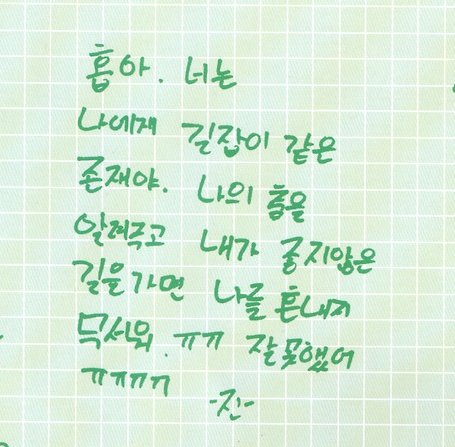 홉아. 너는
나에게 길잡이 같은
존재야. 나의 춤을
알려주고 내가 좋지않은
길을가면 나를 혼내지
무서워. ㅠㅠ 잘못했어
ㅠㅠㅠㅠ -진-